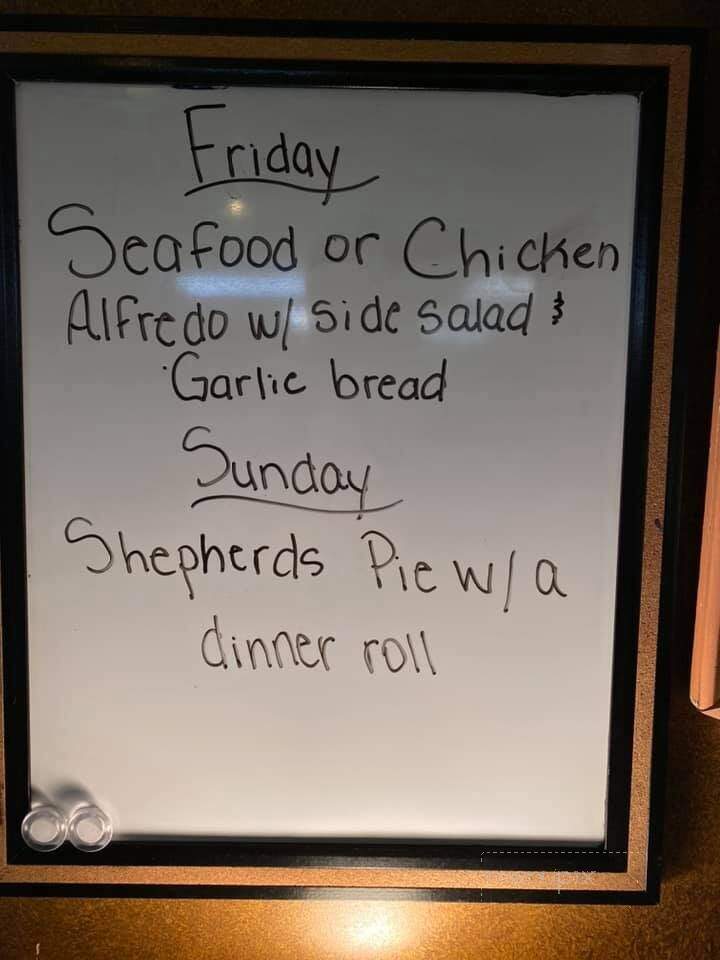 Friday
Seafood or Chicken
Alfredo w/ side salad &
Garlic bread
Sunday
Shepherds Pie w/ a
dinner roll